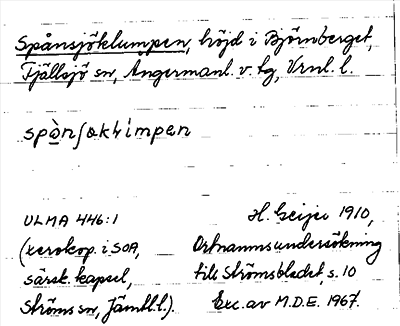 Spånsjöklumpen, höjd i Björnberget,
Fjällsjö sn, Ångermanl. v. tg, Vrnl. l.
ULMA 446:1
(xerokop. i SOA,
särsk. kapsel,
Ströms sn, Jämtl. l.).
H. Geijer 1910,
Ortnamnsundersökning
till Strömsbladet, s. 10
Exc. av M.D.E. 1967.